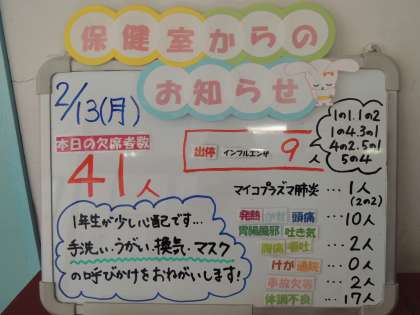 保健室からの
お知らせ
2/13(月)
本日の欠席者数
41人
出停 インフルエンザ 9人
1の1.1の2
1の4.3の1
4の2.5の1
5の4
マイコプラズマ肺炎…1人
(2の2)
発熱 かぜ 頭痛 …10人
胃腸風邪 吐き気
腹痛 嘔吐 …2人
けが 通院 …0人
事故欠等 …2人
体調不良 …17人
1年生が少し心配です…
手洗い.うがい.換気.マスク
の呼びかけをおねがいします!